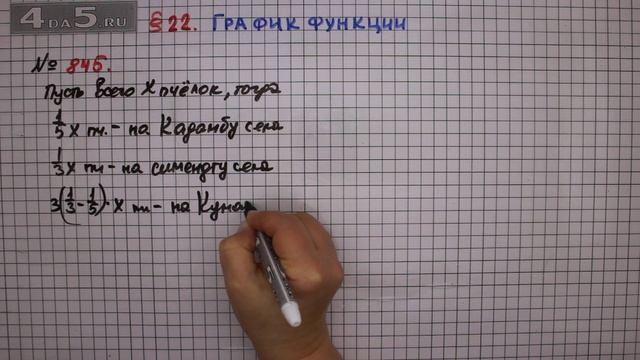 4DA5.RU § 22. ГРАФИК ФУНКЦИИ
№ 845.
Пусть всего x пчёлок, тогда
1/5 x пч. – на Кадамбу села
1/3 x пч – на сименгду села
3(1/3 - 1/5)·x пч – на Кума